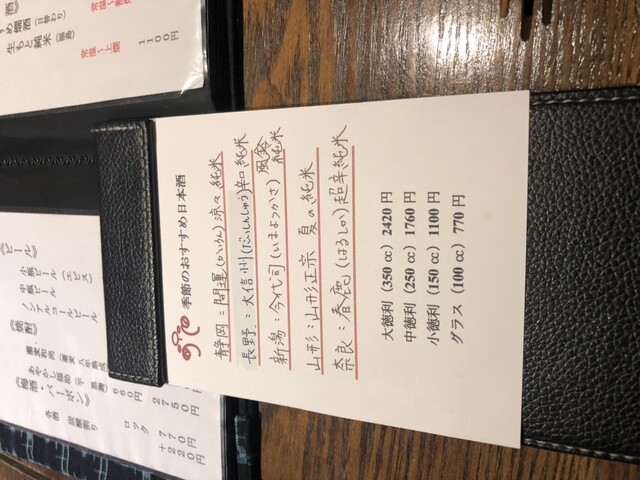 季節のおすすめ日本酒
静岡：開運(かいうん)涼々 純米
長野：大信州(だいしんしゅう)辛口 純米
新潟：今代司(いまよつかさ)風鈴 純米
山形：山形正宗 夏の純米
奈良：春鹿(はるしか)超辛純米
大徳利（350 cc）2420 円
中徳利（250 cc）1760 円
小徳利（150 cc）1100 円
グラス（100 cc）770 円
生もと純米（福島）
常温～上燗
1100円
《ビール》
小瓶ビール（エビス）
中瓶ビール
ノンアルコールビール
《焼酎》
660円
2750円
《梅酒・バーボン》
ロック 770円
炭酸割り +220円